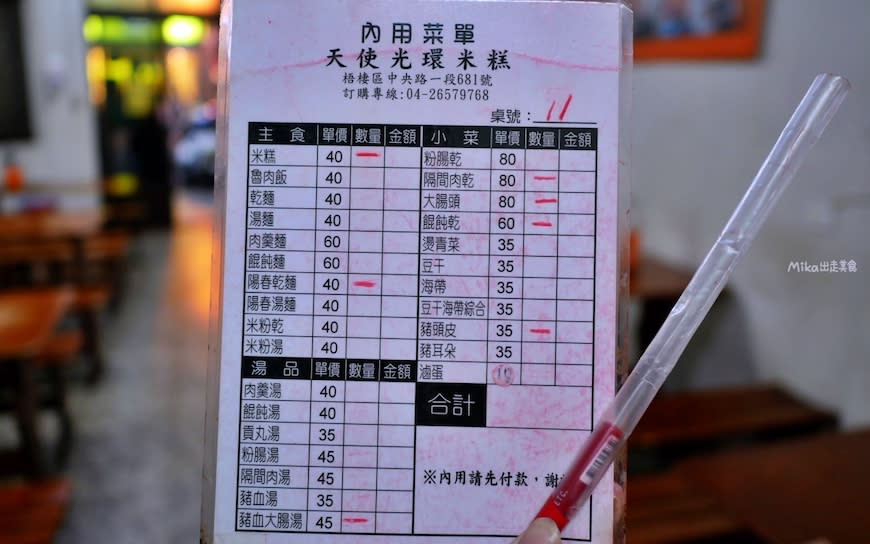 內用菜單
天使光環米糕
梧棲區中央路一段681號
訂購專線:04-26579768
桌號：11
主食 單價 數量 金額 小菜 單價 數量 金額
米糕 40 一 粉腸乾 80
魯肉飯 40 隔間肉乾 80 一
乾麵 40 大腸頭 80 一
湯麵 40 餛飩乾 60 一
肉羹麵 60 燙青菜 35
餛飩麵 60 豆干 35
陽春乾麵 40 一 海帶 35
陽春湯麵 40 豆干海帶綜合 35
米粉乾 40 豬頭皮 35 一
米粉湯 40 豬耳朵 35
湯品 單價 數量 金額 滷蛋
肉羹湯 40 合計
餛飩湯 40
貢丸湯 35
粉腸湯 45
隔間肉湯 45 ※內用請先付款，謝
豬血湯 35
豬血大腸湯 45 一
Mika出走美食